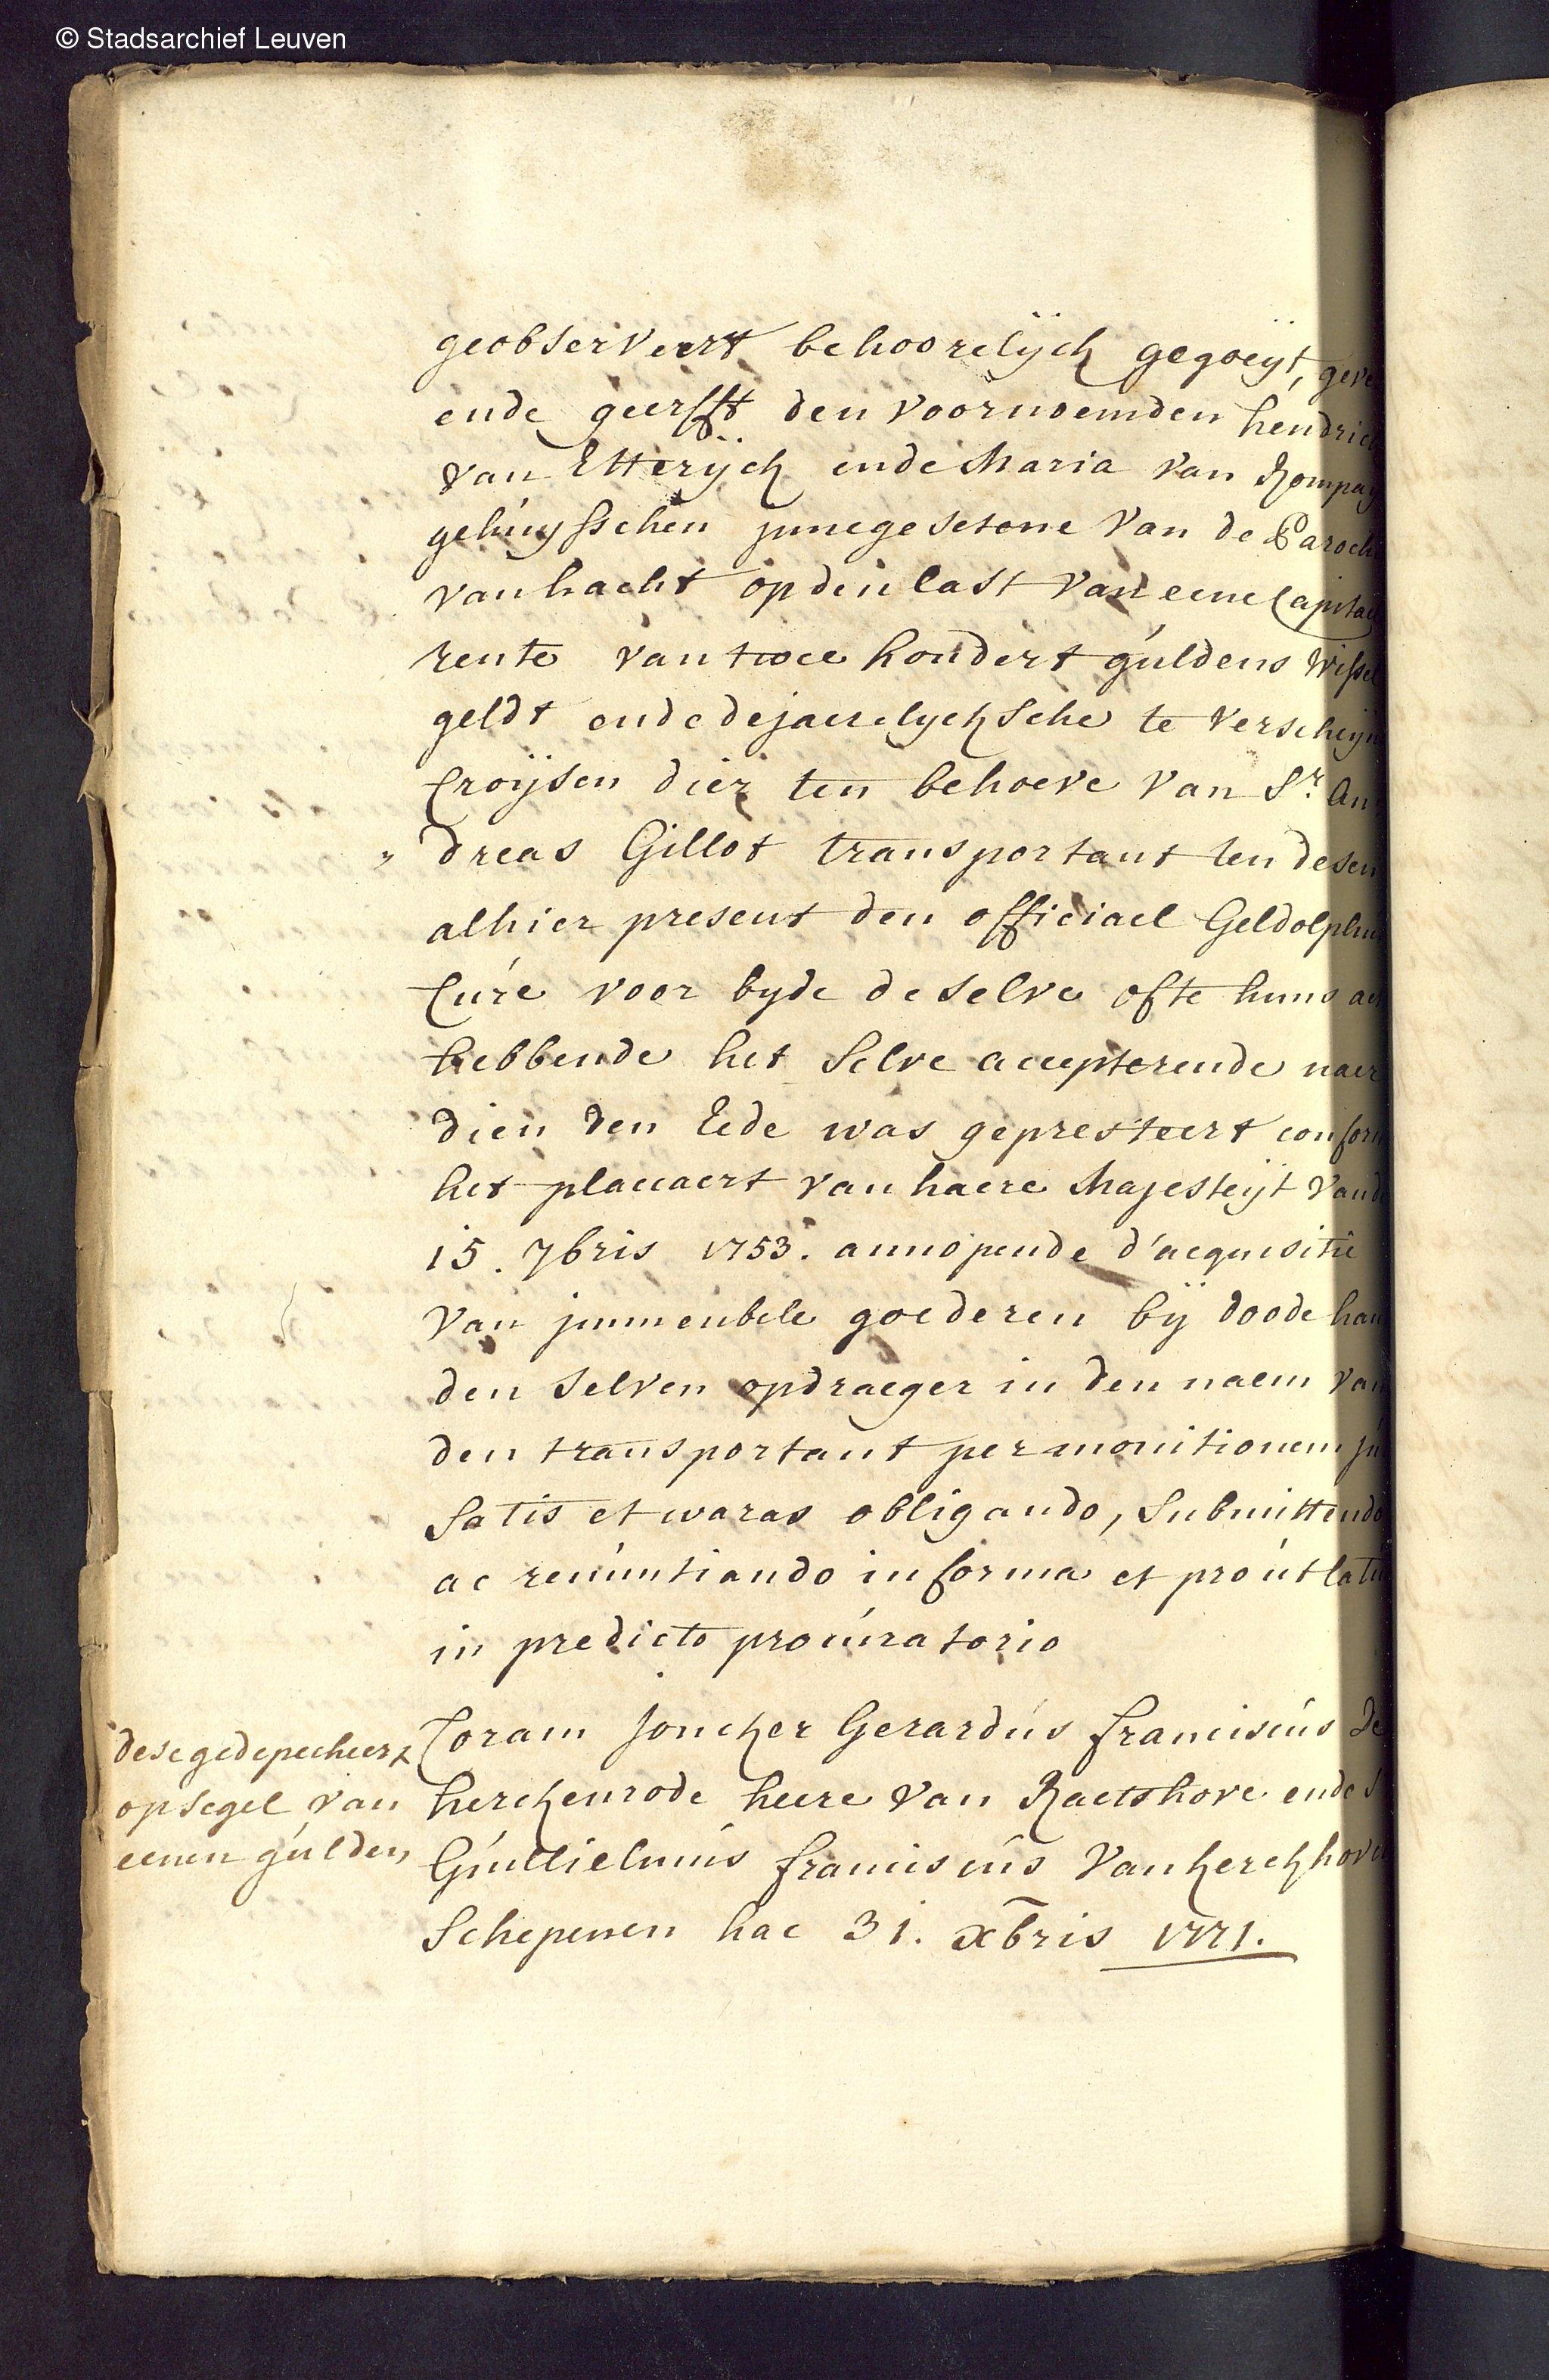 © Stadsarchief Leuven
geobserveert behoorelijck gegoeijt, geve
ende geerfft den voornoemden hendrick
van Etterijck ende Maria van Rompaij
gehuijsschen innegesetene van de Paroch
van hacht op den last van eene Capitae
rente van twee hondert guldens wissel
geldt ende de jaerelycksche te verscheijn
Croijsen dier ten behoeve van Sr. An
dreas Gillot transportant ten desen
alhier present den officiael Geldolphus
Curé voor byde de selve ofte huns ac
hebbende het selve accepterende naer
dien den Eede was gepresteert conform
het placcaert van haere Majesteijt vand
15. 7bris 1753. annopende d'acquisitie
van immeubele goederen bij doode han
den selven opdraeger in den naem van
den transportant per monitionem ju
satis et waras obligando, submittendo
ac renuntiando in forma et prout latiu
in predicto procuratorio
Coram Joncker Gerardus franciscus de
herckenrode heere van Raetshove ende S
Guillielmus franciscus Vankerckhove
Schepenen hac 31. xbris 1771.
dese gedepecheert
op segel van
eenen gulden